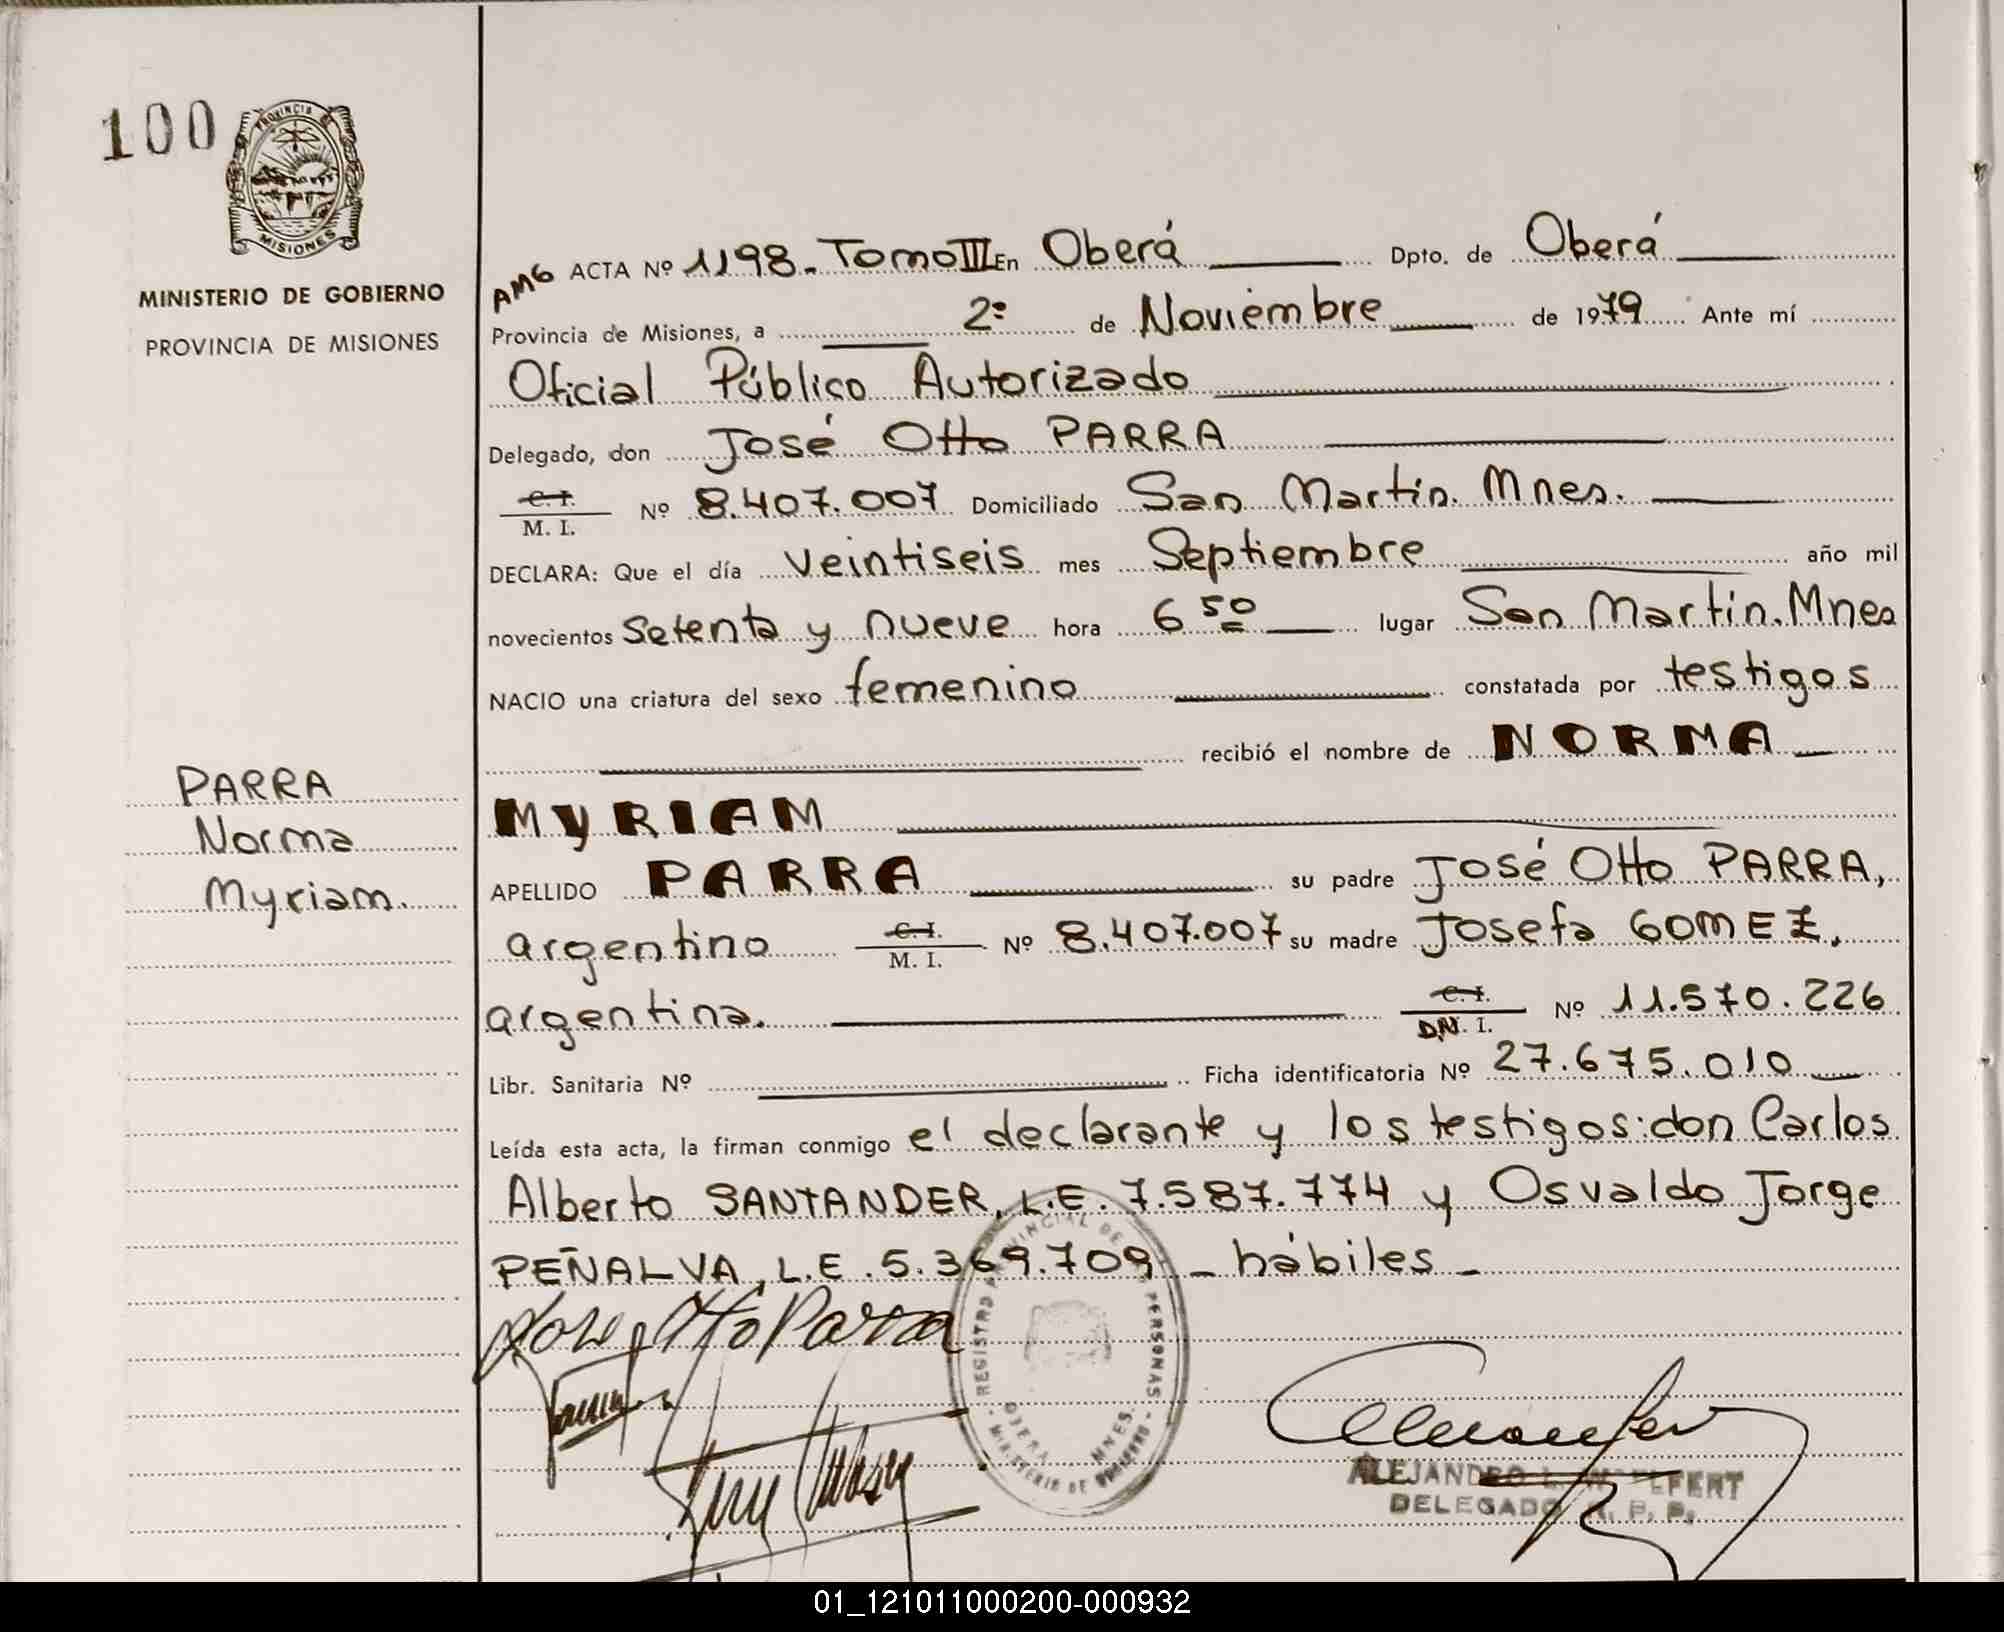 100
PROVINCIA DE
MISIONES
MINISTERIO DE GOBIERNO
PROVINCIA DE MISIONES
AMG ACTA Nº 1198. Tomo III En Oberá Dpto. de Oberá
Provincia de Misiones, a 2º de Noviembre de 1979 Ante mí
Oficial Público Autorizado
Delegado, don José Otto PARRA
C. I.
M. I. Nº 8.407.007 Domiciliado San Martín. Mnes.
DECLARA: Que el día veintiseis mes Septiembre año mil
novecientos setenta y nueve hora 6 50 lugar San Martín. Mnes
NACIO una criatura del sexo femenino constatada por testigos
recibió el nombre de NORMA
MYRIAM
PARRA
Norma
Myriam.
APELLIDO PARRA su padre José Otto PARRA,
argentino C. I.
M. I. Nº 8.407.007 su madre Josefa GOMEZ,
argentina. C. I.
DN. I. Nº 11.570.226
Libr. Sanitaria Nº Ficha identificatoria Nº 27.675.010
Leída esta acta, la firman conmigo el declarante y los testigos: don Carlos
Alberto SANTANDER, L.E. 7.587.774 y Osvaldo Jorge
PEÑALVA, L.E. 5.369.709 - hábiles -
José Otto Parra
REGISTRO PROVINCIAL DE PERSONAS
OBERA MNES.
MINISTERIO DE GOBIERNO
ALEJANDRO L. W ELFERT
DELEGADO R. P. P.
01_121011000200-000932